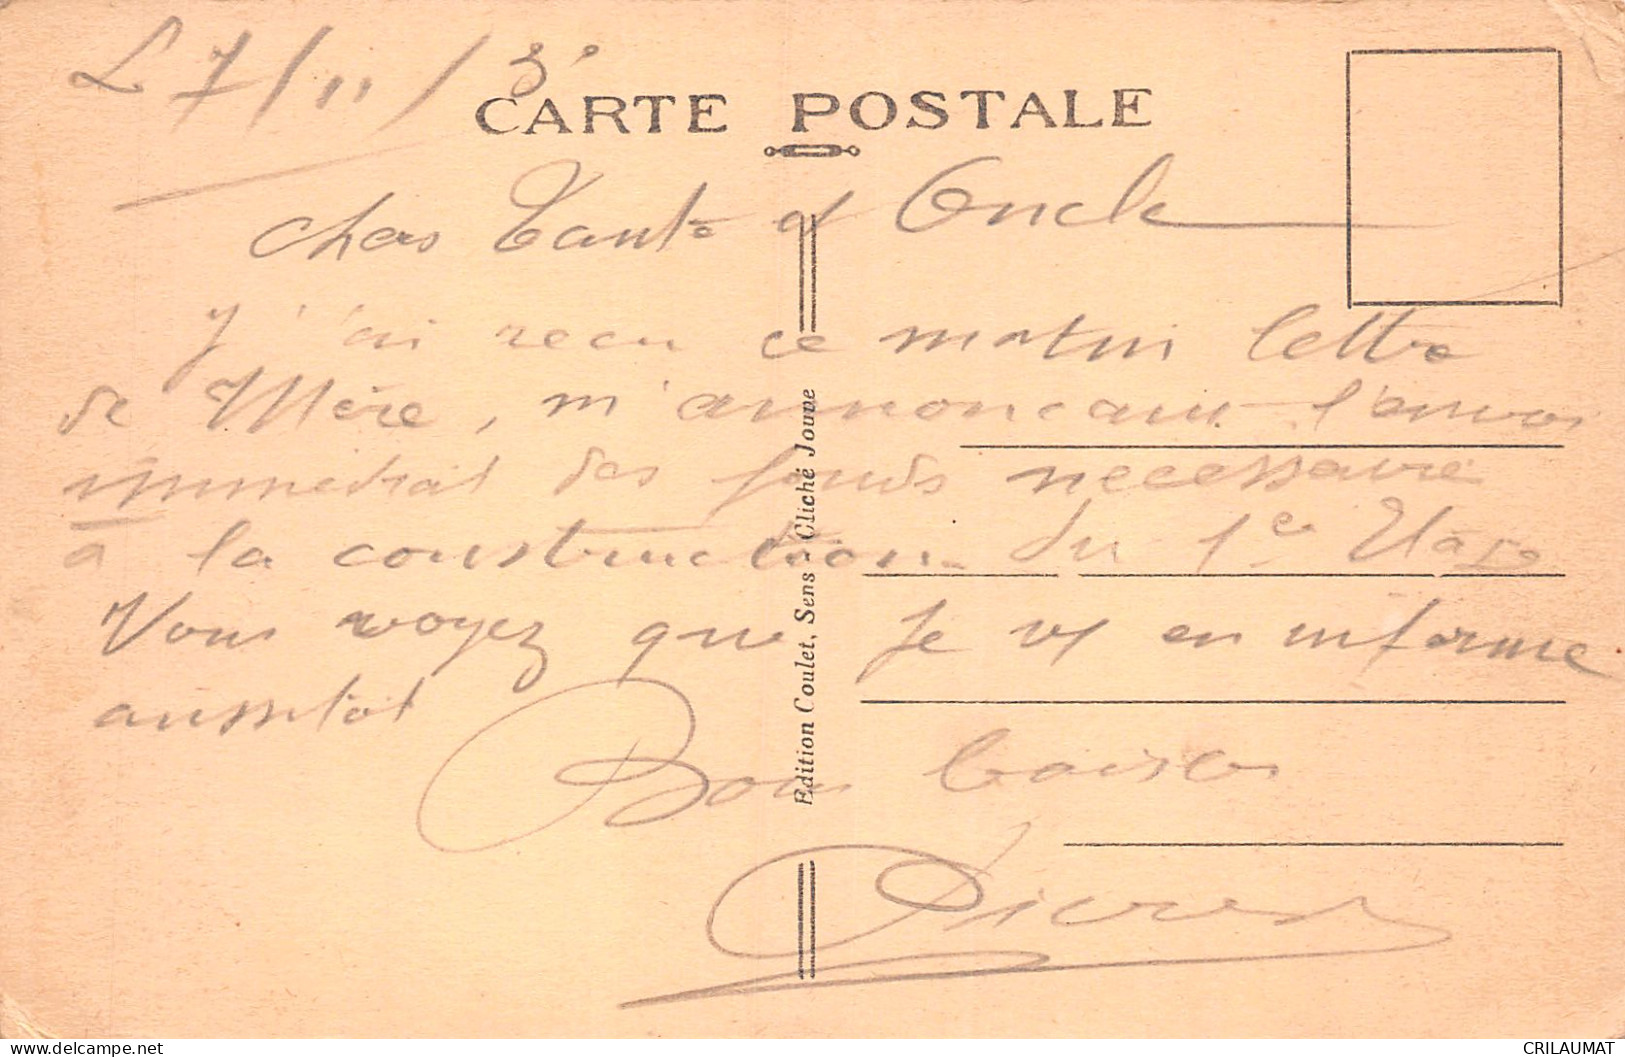 L 7/11/3
CARTE POSTALE
chers Tante et Oncle
J'ai recu ce matin lettre
de Mère, m'annoncant l'envoi
immediat des fonds necessaire
à la construction du 1er Etage
Vous voyez que je vs en informe
aussitot
Bons baisers
Pierre
Edition Coulet, Sens - Cliché Jouve
CRILAUMAT